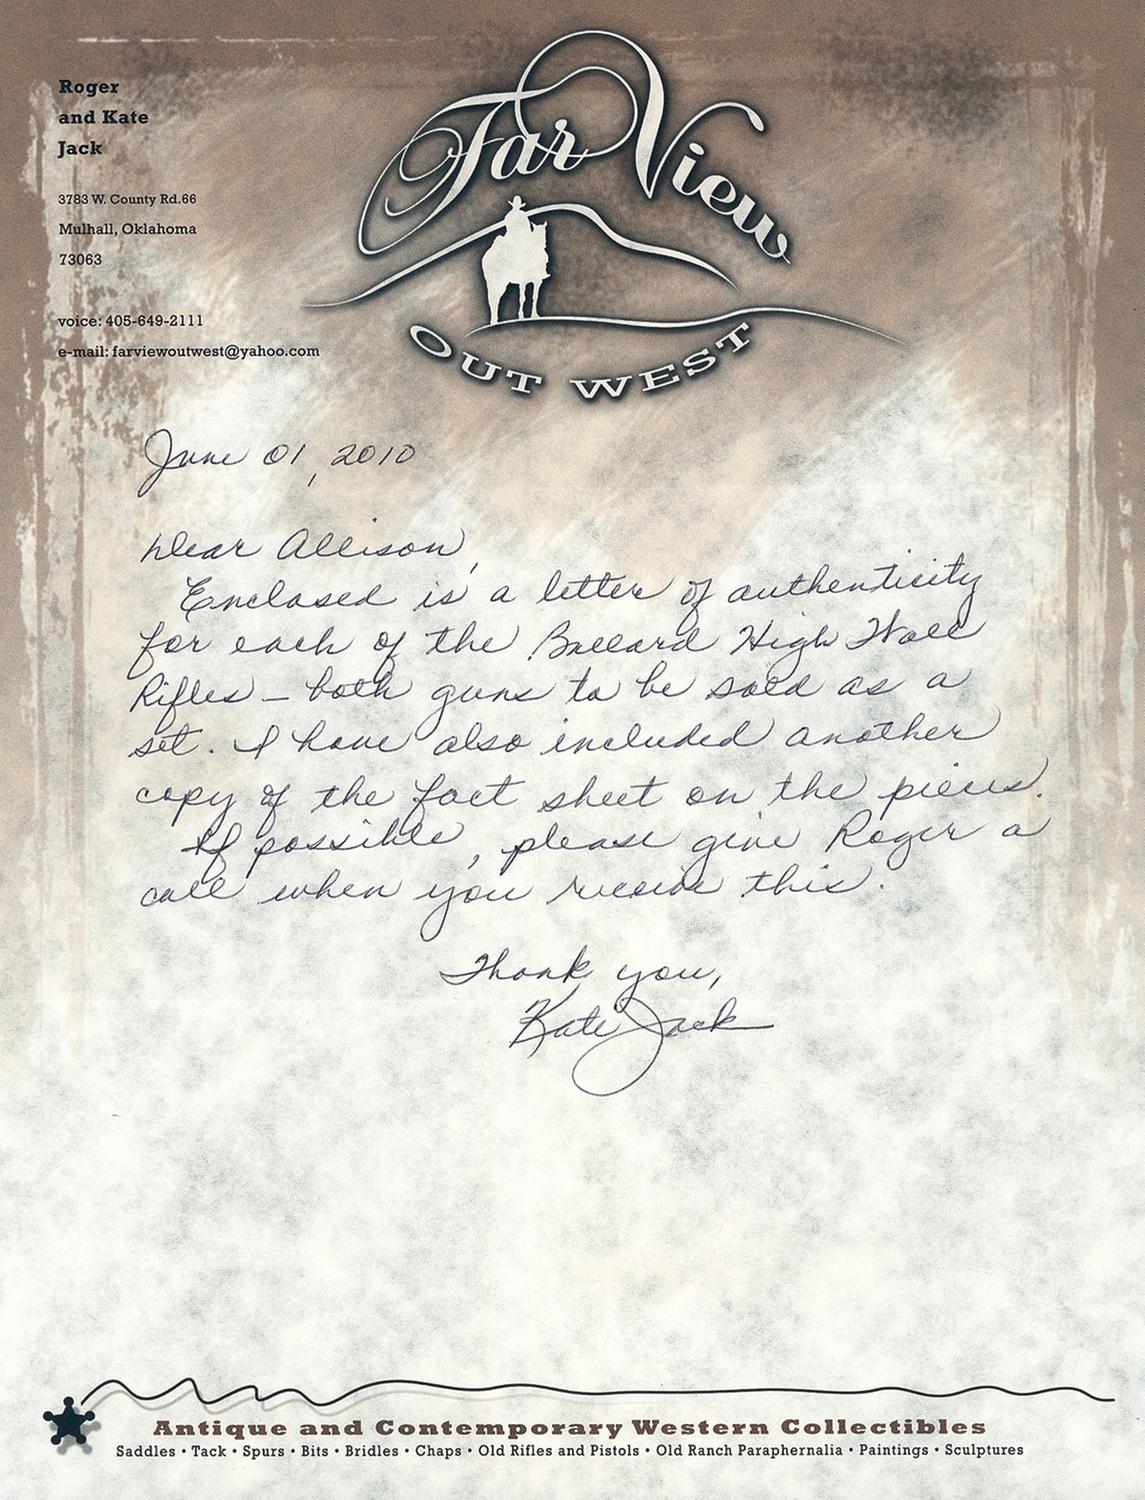 Roger
and Kate
Jack
3783 W. County Rd.66
Mulhall, Oklahoma
73063
voice: 405-649-2111
e-mail: farviewoutwest@yahoo.com
Far View
OUT WEST
June 01, 2010
Dear Allison,
Enclosed is a letter of authenticity
for each of the Ballard High Wall
Rifles – both guns to be sold as a
set. I have also included another
copy of the fact sheet on the pieces.
If possible, please give Roger a
call when you receive this.
Thank you,
Kate Jack
Antique and Contemporary Western Collectibles
Saddles • Tack • Spurs • Bits • Bridles • Chaps • Old Rifles and Pistols • Old Ranch Paraphernalia • Paintings • Sculptures